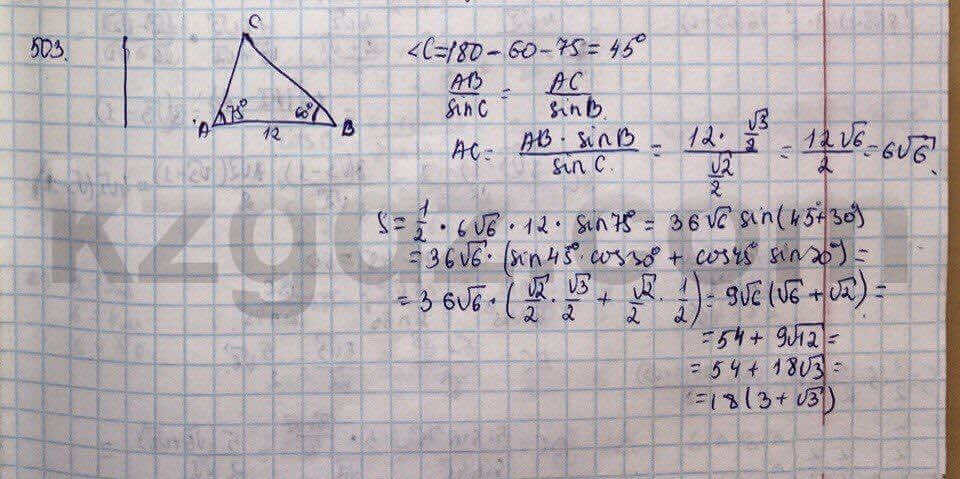 503.
C
75°
60°
A
12
B
<C=180-60-75=45°
AB/sinC = AC/sinB.
AC = (AB · sinB)/(sinC.) = (12 · √3/2)/(√2/2) = 12√6/2 = 6√6.
S = 1/2 · 6√6 · 12 · sin75° = 36√6 sin(45°+30°)
= 36√6 · (sin45° · cos30° + cos45° sin30°) =
= 36√6 · (√2/2 · √3/2 + √2/2 · 1/2) = 9√6(√6+√2) =
= 54 + 9√12 =
= 54 + 18√3 =
= 18(3+√3)